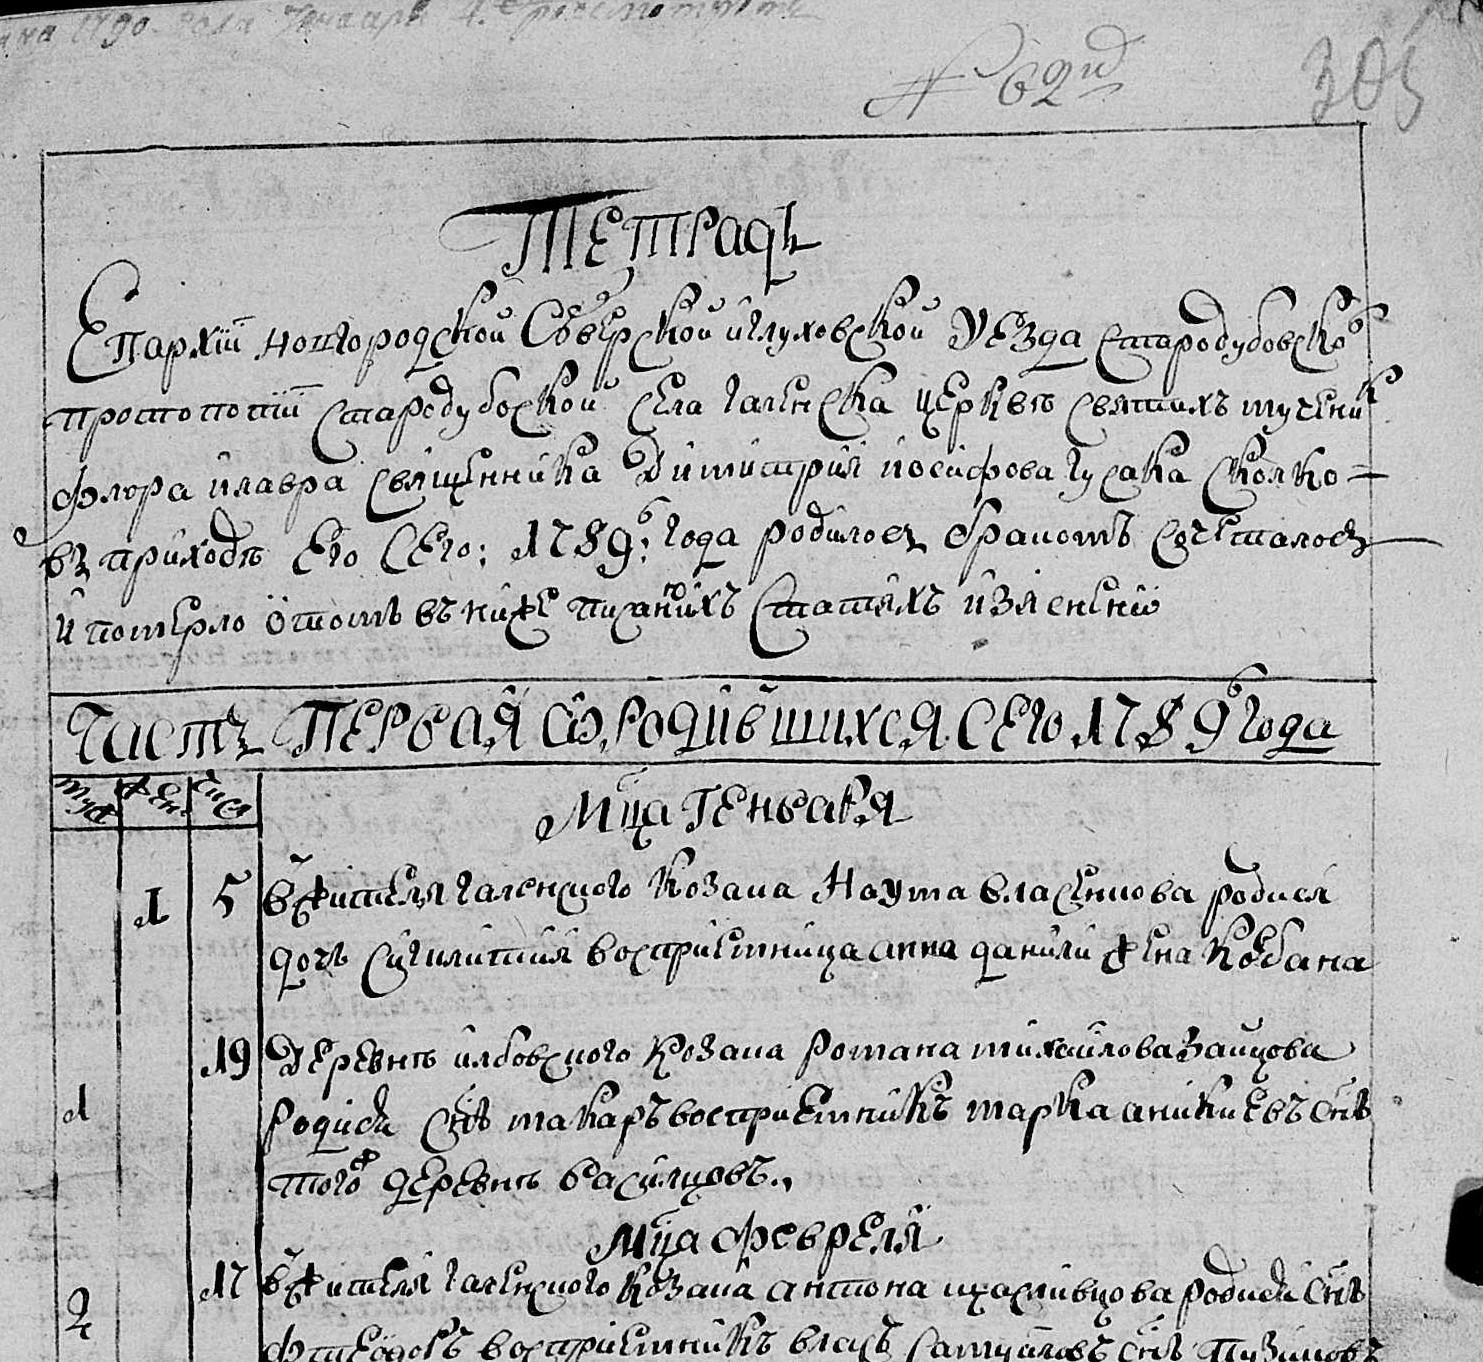 1790 года Генваря 4.
№ 62й
305
Тетрадь
Епархіи Новгородской Сѣверской и Глуховской уезда Стародубовского
протопопіи Стародубской села Галенска церквѣ святихъ мученик
Флора и Лавра священника Димитрия Иосифова Гусака сколко
въ приходѣ его сего: 1789г: года родилось браномъ сочеталось
и померло о томъ въ нижеписанихъ статяхъ изяснено
Часть первая о родившихся сего 1789г года
муж жен числ
Мца Генваря
1 5 В жителя галенского козака Наума Власенкова родися
дочъ восприемница Анна Данили жена Кобана
19 Деревнѣ Илбовского козака Романа Михайлова Зайцова
1 родися снъ Макаръ восприемникъ Марка Аникиевъ снъ
тогож деревнѣ Василцовъ.,
Мца Февреля
2 17 В жителя галенского козака Антона родися снъ
восприемникъ Власъ снъ